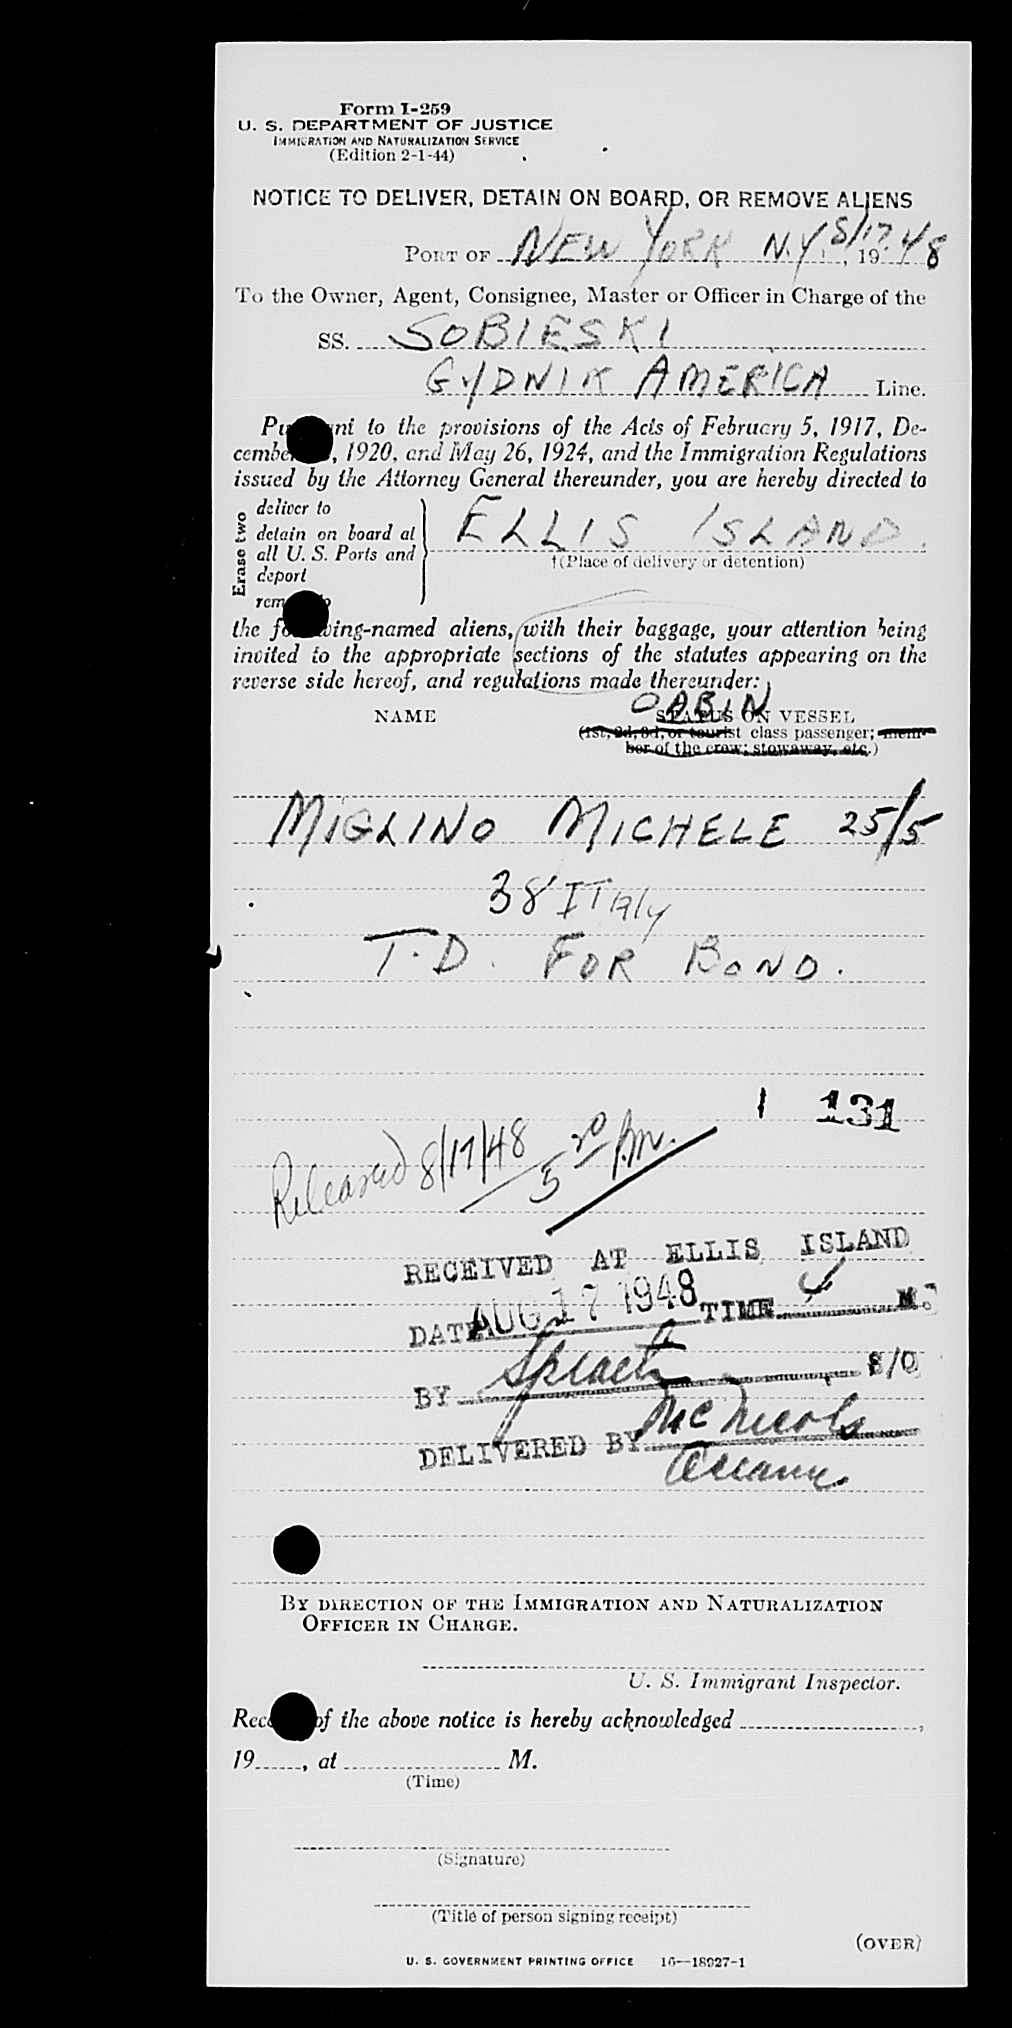 Form I-259
U. S. DEPARTMENT OF JUSTICE
IMMIGRATION AND NATURALIZATION SERVICE
(Edition 2-1-44)
NOTICE TO DELIVER, DETAIN ON BOARD, OR REMOVE ALIENS
PORT OF NEW YORK N.Y. 8/17, 1948
To the Owner, Agent, Consignee, Master or Officer in Charge of the
SS. SOBIESKI
GYDNIK AMERICA Line.
Pu nt to the provisions of the Acts of February 5, 1917, De-
cembe , 1920, and May 26, 1924, and the Immigration Regulations
issued by the Attorney General thereunder, you are hereby directed to
Erase two
deliver to
detain on board at
all U. S. Ports and
deport
rem o
ELLIS ISLAND.
†(Place of delivery or detention)
the fo wing-named aliens, with their baggage, your attention being
invited to the appropriate sections of the statutes appearing on the
reverse side hereof, and regulations made thereunder:
CABIN
NAME STATUS ON VESSEL
(1st, 2d, 3d, or tourist class passenger; mem-
ber of the crew; stowaway, etc.)
MIGLINO MICHELE 25/5
38 ITALY
T.D. FOR BOND.
1 131
Released 8/17/48 5 20 P.m.
RECEIVED AT ELLIS ISLAND
DATE AUG 17 1948 TIME M.
BY S/O
DELIVERED BY McNicols
By direction of the Immigration and Naturalization
Officer in Charge.
U. S. Immigrant Inspector.
Rece of the above notice is hereby acknowledged ,
19 , at M.
(Time)
(Signature)
(Title of person signing receipt)
(OVER)
U. S. GOVERNMENT PRINTING OFFICE 16—18927-1